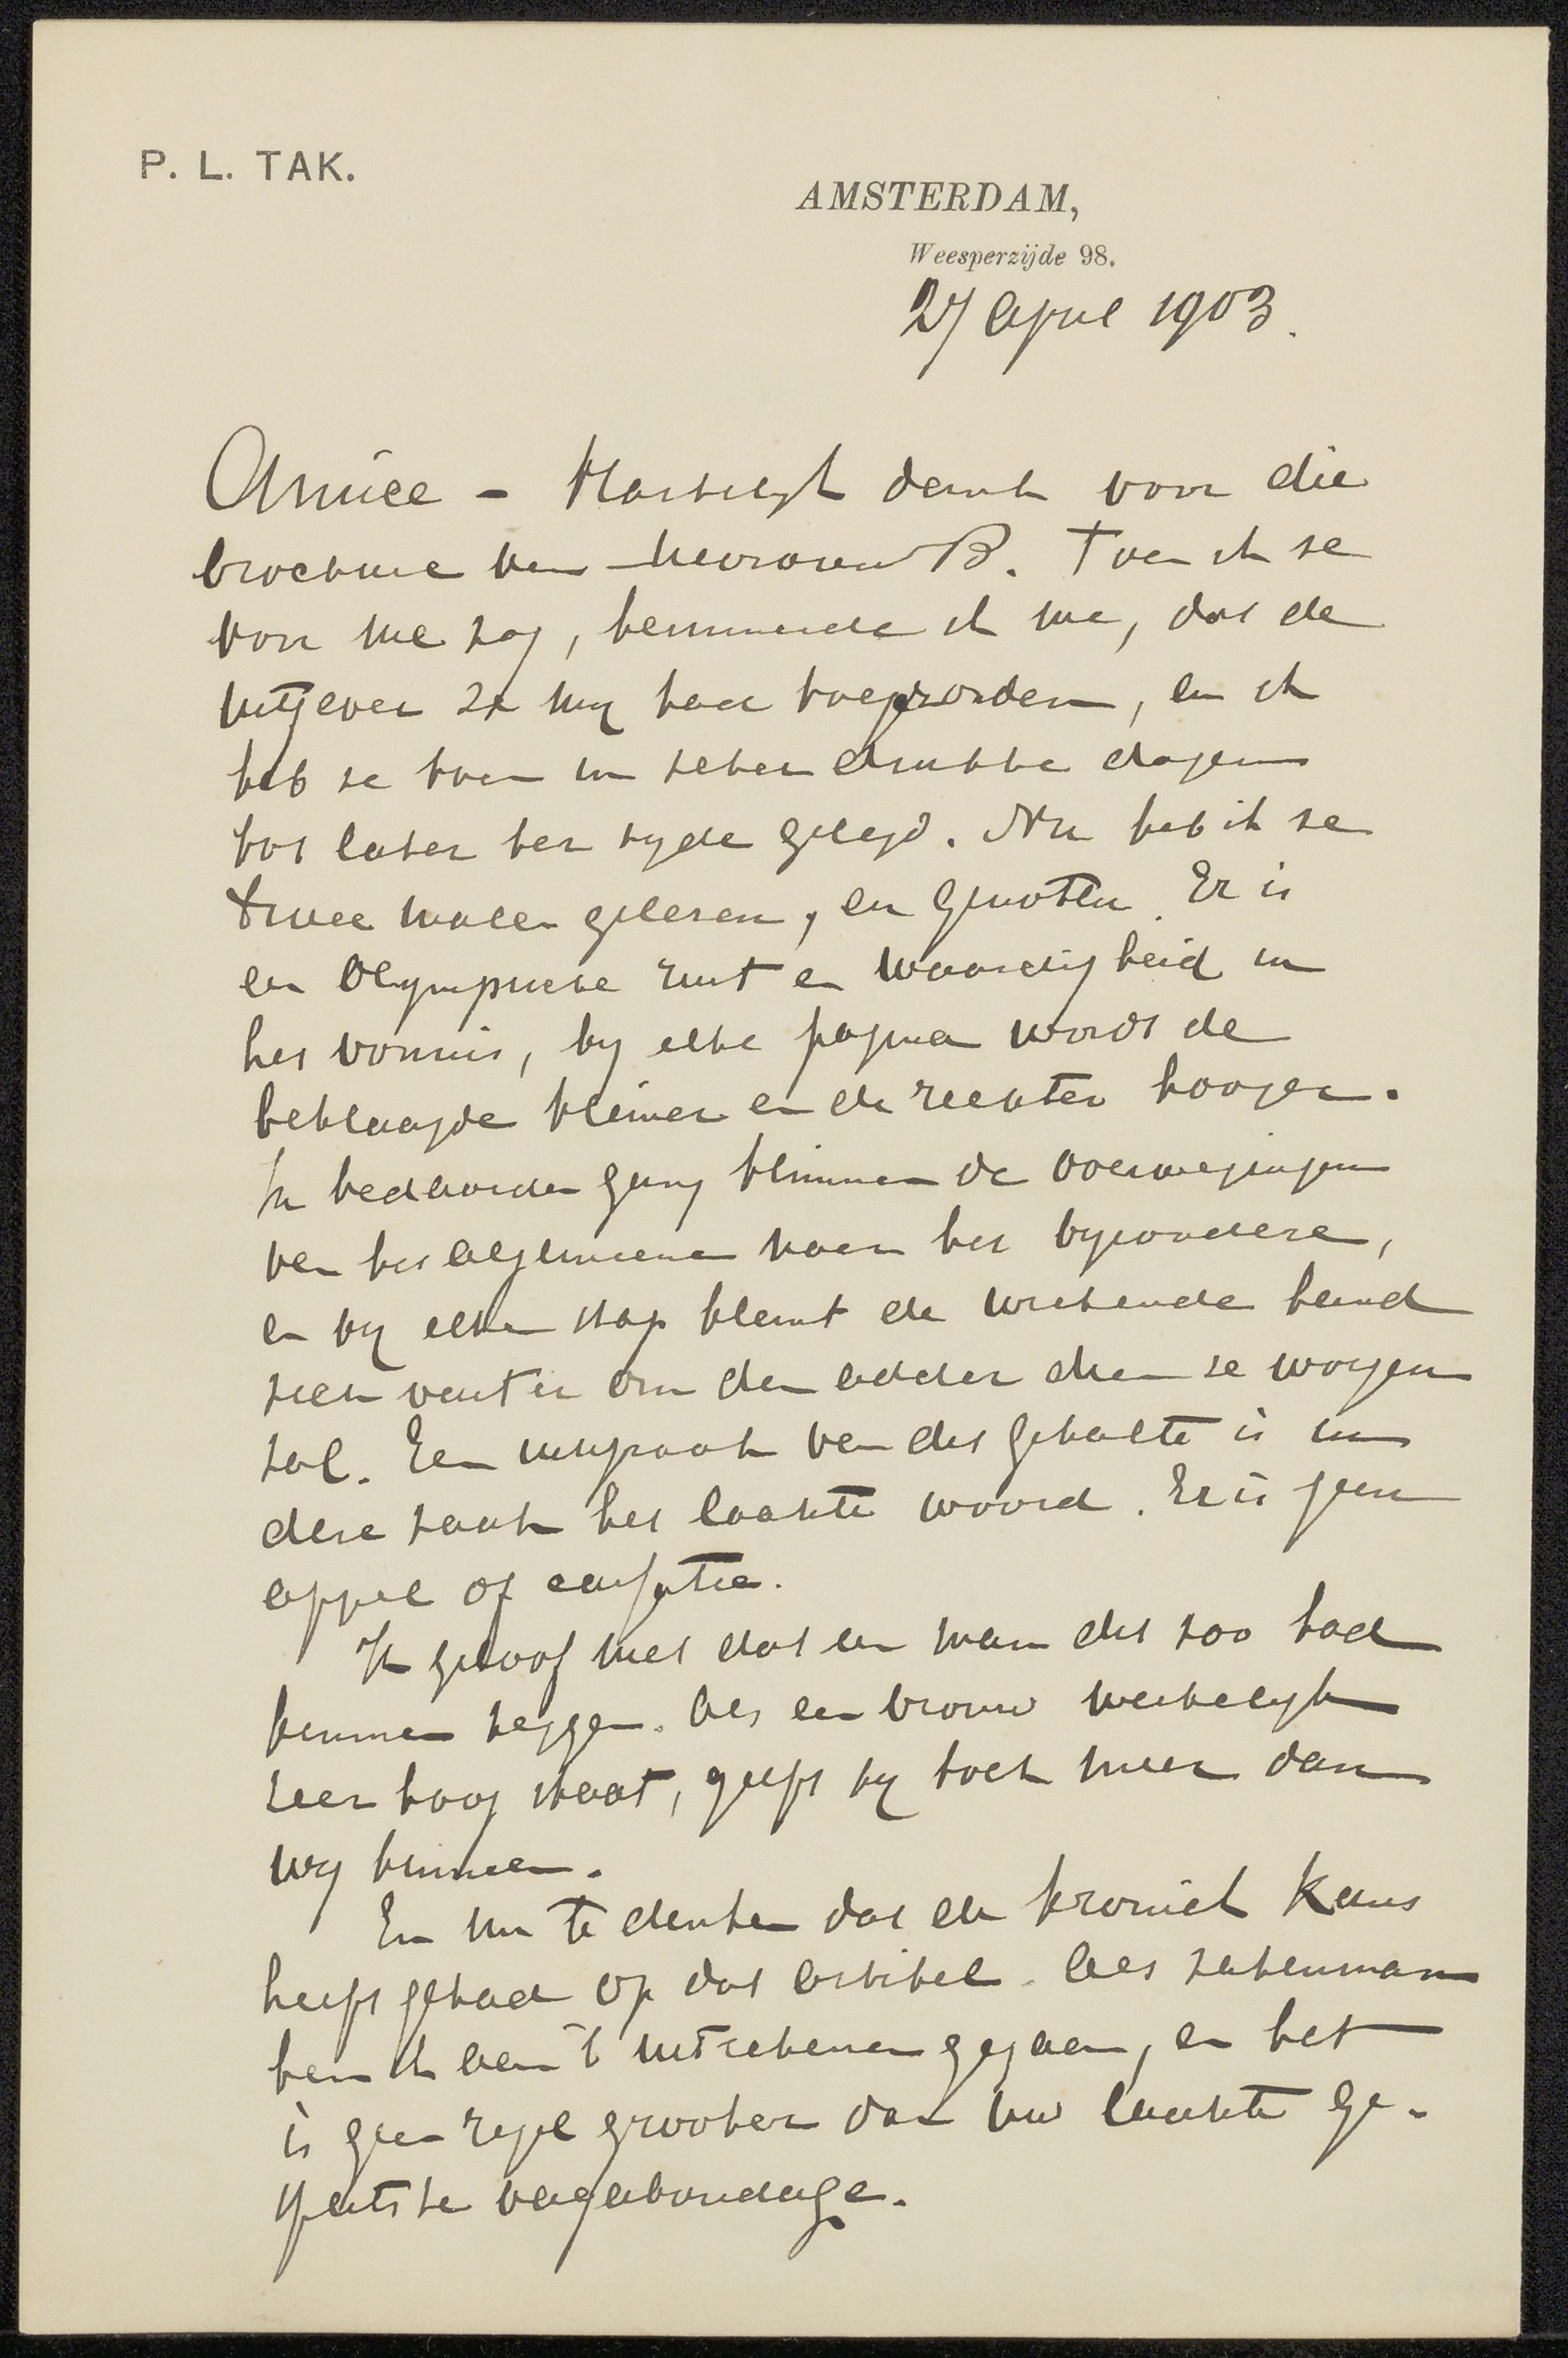 P. L. TAK.
AMSTERDAM,
Weesperzijde 98.
27 April 1903.
Amice – Hartelijk dank voor die
brochure van Mevrouw B. Toen ik ze
voor me zag, herinnerde ik me, dat de
uitgever ze mij had toegezonden, en ik
heb ze toen in zeker drukke dagen
tot later ter zyde gelegd. Nu heb ik ze
twee malen gelezen, en genoten. Er is
een Olympische rust en waardigheid in
het vonnis, by elke pagina wordt de
beklaagde kleiner en de rechter hooger.
In bedaarden gang klimmen de overwegingen
van het algemeene naar het byzondere,
en by elken stap klemt de wrekende hand
zich vaster om den adder dien ze worgen
zal. Een uitspraak van dit gehalte is in
deze zaak het laatste woord. Er is geen
appel of cassatie.
Ik geloof niet dat een man dit zoo had
kunnen zeggen. Als een vrouw werkelyk
zeer hoog staat, geeft zy toch meer dan
wy kunnen.
En nu te denken dat de kroniek kans
heeft gehad op dat artikel. Als zakenman
ben ik aan 't uitrekenen gegaan, en het
is geen regel grooter dan uw laatste ge-
spatste vagabondage.